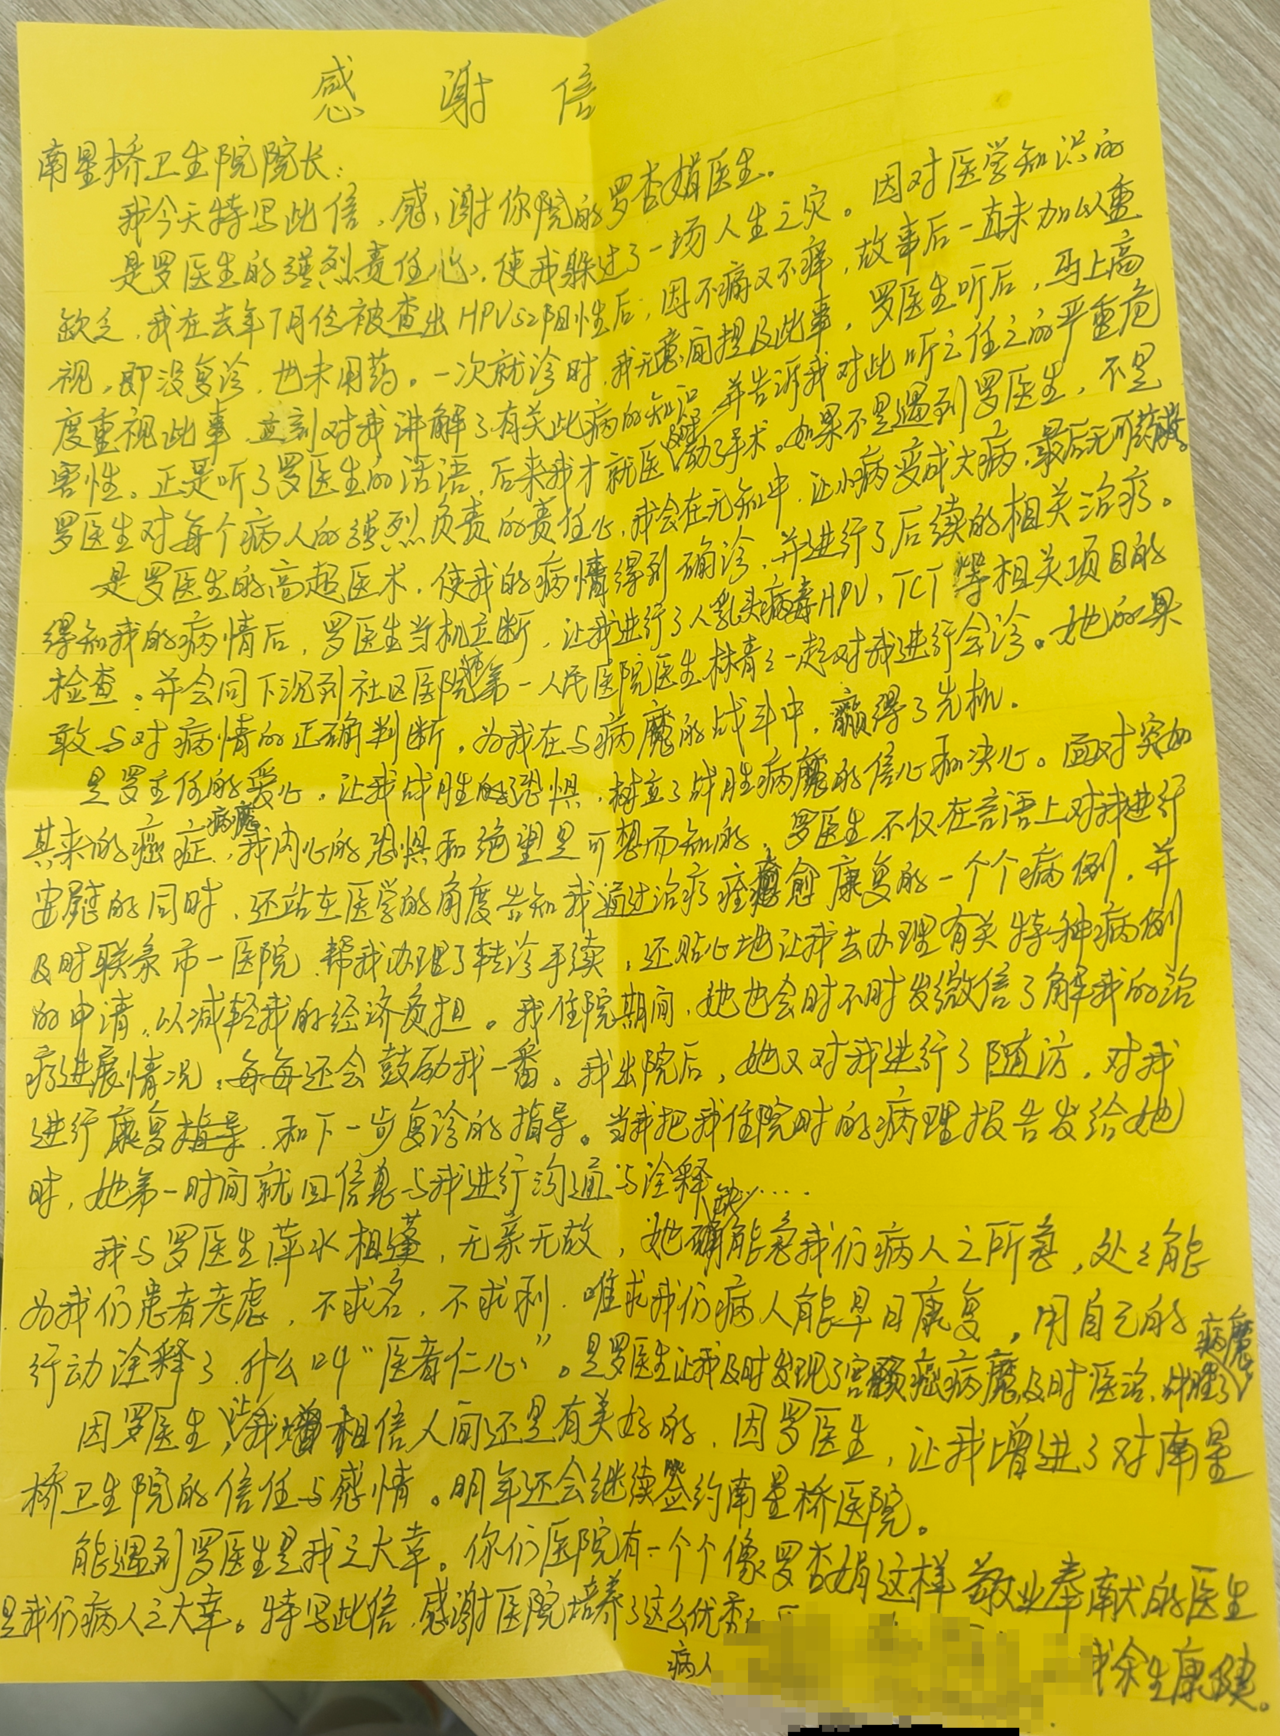 感谢信
南星桥卫生院院长:
我今天特写此信,感谢你院的罗杏娟医生。
是罗医生的强烈责任心,使我躲过了一场人生之灾。因对医学知识的
缺乏,我在去年7月份被查出HPV52阳性后,因不痛又不痒,故事后一直未加以重
视,即没复诊,也未用药。一次就诊时,我无意间提及此事,罗医生听后,马上高
度重视此事,立刻对我讲解了有关此病的知识,并告诉我对此听之任之的严重危
害性。正是听了罗医生的话语,后来我才就医动了手术。如果不是遇到罗医生,不是
罗医生对每个病人的强烈负责的责任心,我会在无知中,让小病变成大病,最后无可药救。
是罗医生的高超医术,使我的病情得到确诊,并进行了后续的相关治疗。
得知我的病情后,罗医生当机立断,让我进行了人乳头病毒HPV、TCT等相关项目的
检查。并会同下沉到社区医院的第一人民医院医生林青之一起对我进行会诊。她的果
敢与对病情的正确判断,为我在与病魔的战斗中,赢得了先机。
是罗主任的爱心,让我战胜的恐惧,树立了战胜病魔的信心和决心。面对突如
其来的癌症病魔,我内心的恐惧和绝望是可想而知的,罗医生不仅在言语上对我进行
安慰的同时,还站在医学的角度告知我通过治疗痊愈康复的一个个病例,并
及时联系市一医院,帮我办理了转诊手续,还贴心地让我去办理有关特种病例
的申请,以减轻我的经济负担。我住院期间,她也会时不时发微信了解我的治
疗进展情况,每每还会鼓励我一番。我出院后,她又对我进行了随访,对我
进行康复指导,和下一步复诊的指导。当我把我住院时的病理报告发给她
时,她第一时间就回信息与我进行沟通与诠释……
我与罗医生萍水相逢,无亲无故,她却能急我们病人之所急,处处能
为我们患者考虑,不求名,不求利,唯求我们病人能早日康复,用自己的
行动诠释了什么叫“医者仁心”。是罗医生让我及时发现了宫颈癌病魔,及时医治,战胜了病魔
因罗医生,让我相信人间还是有美好的,因罗医生,让我增进了对南星
桥卫生院的信任与感情。明年还会继续签约南星桥医院。
能遇到罗医生是我之大幸。你们医院有一个个像罗杏娟这样敬业奉献的医生
是我们病人之大幸。特写此信,感谢医院培养了这么优秀
我余生康健。
病人